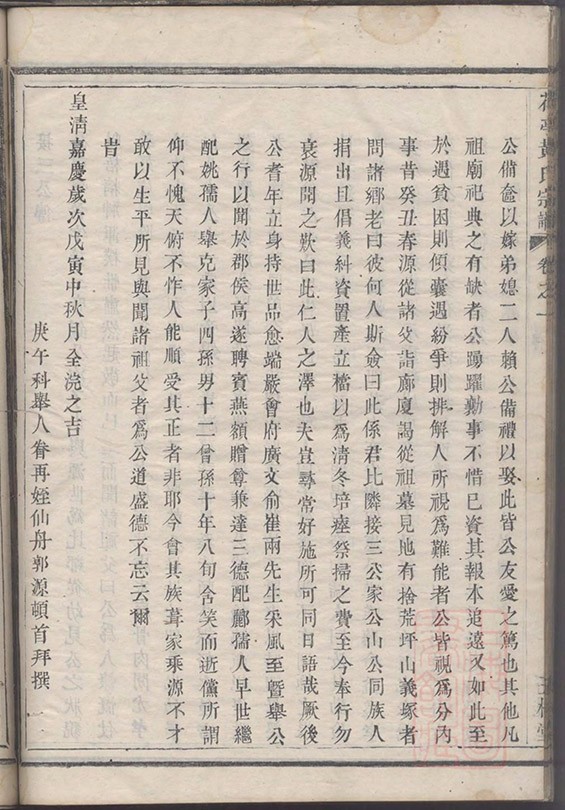 公備奩以嫁弟媳二人賴公備禮以娶此皆公友愛之篤也其他凡
祖廟祀典之有缺者公踴躍勷事不惜已資其報本追遠又如此至
於遇貧困則傾囊遇紛爭則排解人所視爲難能者公皆視爲分內
事昔癸丑春源從諸父詣廊廈謁從祖墓見地有捨荒坪山義塚者
問諸鄉老曰彼何人斯僉曰此係君比隣接三公家公山公同族人
捐出且倡義糾資置產立檔以爲清冬培瘞祭掃之費至今奉行勿
衰源聞之歎曰此仁人之澤也夫豈尋常好施所可同日語哉厥後
公耆年立身持世品愈端嚴會府廣文俞崔兩先生采風至暨舉公
之行以聞於郡侯高遂聘賓燕額贈尊兼達三德配酈孺人早世繼
配姚孺人舉克家子四孫男十二曾孫十年八旬含笑而逝儻所謂
仰不愧天俯不怍人能順受其正者非耶今會其族葺家乘源不才
敢以生平所見與聞諸祖父者爲公道盛德不忘云爾
旹
皇清嘉慶歲次戊寅中秋月全浣之吉
庚午科舉人眷再姪仙舟郭源頓首拜撰
氏宗譜 卷之一